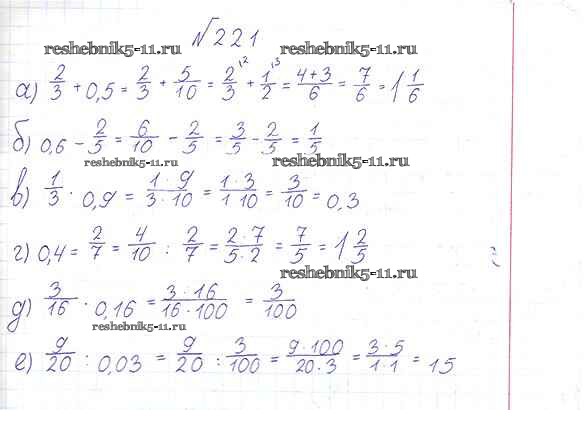 №221
reshebnik5-11.ru reshebnik5-11.ru
а) 2/3 + 0,5 = 2/3 + 5/10 = 2/3^12 + 1/2^13 = (4+3)/6 = 7/6 = 1 1/6
б) 0,6 - 2/5 = 6/10 - 2/5 = 3/5 - 2/5 = 1/5
reshebnik5-11.ru reshebnik5-11.ru
в) 1/3 · 0,9 = (1·9)/(3·10) = (1·3)/(1·10) = 3/10 = 0,3
г) 0,4 = 2/7 = 4/10 : 2/7 = (2·7)/(5·2) = 7/5 = 1 2/5
reshebnik5-11.ru reshebnik5-11.ru
д) 3/16 · 0,16 = (3·16)/(16·100) = 3/100
reshebnik5-11.ru
е) 9/20 : 0,03 = 9/20 : 3/100 = (9·100)/(20·3) = (3·5)/(1·1) = 15